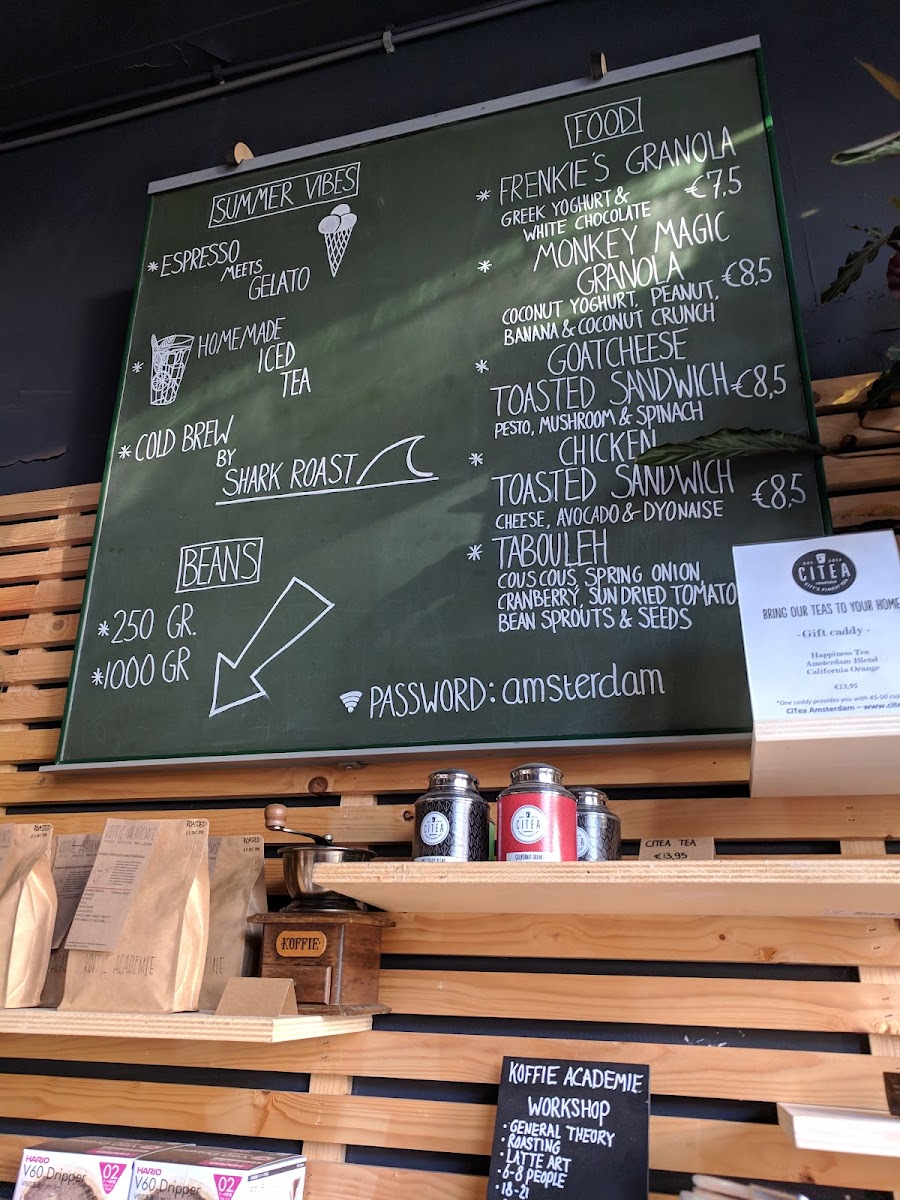 SUMMER VIBES
*ESPRESSO
MEETS
GELATO
* HOMEMADE
ICED
TEA
*COLD BREW
BY
SHARK ROAST
BEANS
*250 GR.
*1000 GR
FOOD
* FRENKIE'S GRANOLA
€7,5
GREEK YOGHURT &
WHITE CHOCOLATE
* MONKEY MAGIC
GRANOLA €8,5
COCONUT YOGHURT, PEANUT,
BANANA & COCONUT CRUNCH
* GOATCHEESE
TOASTED SANDWICH €8,5
PESTO, MUSHROOM & SPINACH
* CHICKEN
TOASTED SANDWICH €8,5
CHEESE, AVOCADO & DYONAISE
* TABOULEH
COUSCOUS, SPRING ONION,
CRANBERRY, SUNDRIED TOMATO
BEAN SPROUTS & SEEDS
PASSWORD: amsterdam
CITEA
BRING OUR TEAS TO YOUR HOME
- Gift caddy -
Happiness Tea
Amsterdam Blend
California Orange
€13,95
*One caddy provides you with 45-50 cup
CITea Amsterdam – www.cite
CITEA
CITEA
CITEA
CITEA TEA
€13,95
ROASTED
KOFFIE ACADEMIE
ROASTED
KOFFIE ACADEMIE
KOFFIE
KOFFIE ACADEMIE
WORKSHOP
• GENERAL THEORY
• ROASTING
• LATTE ART
• 6-8 PEOPLE
• 18-21
HARIO
V60 Dripper
02
HARIO
V60 Dripper
02